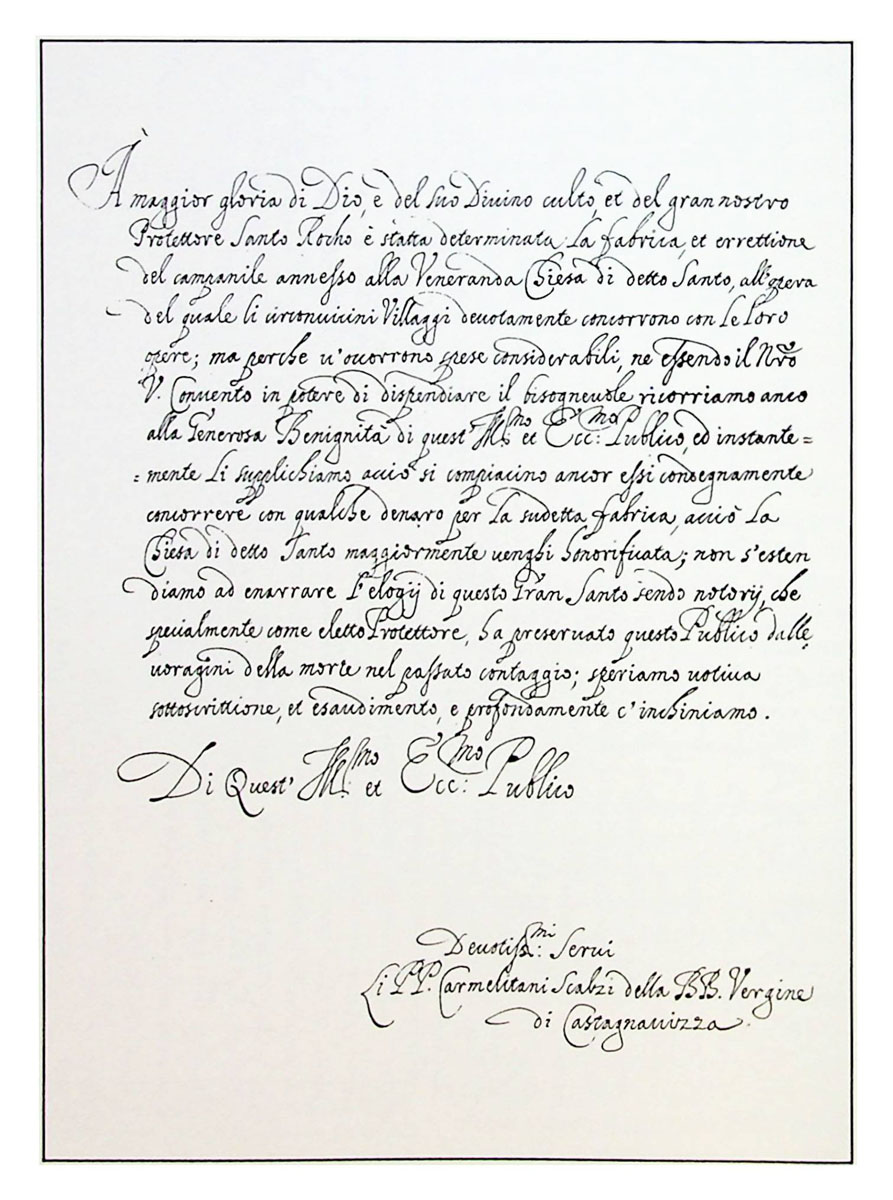 À maggior gloria di Dio, è del suo Divino culto, et del gran nostro
Protettore Santo Rocho è statta determinata la fabrica, et errettione
del campanile annesso alla Veneranda Chiesa di detto Santo, all'opera
del quale li circonuicini Villaggi deuotamente concorrono con le loro
opere; ma perche u'ocorrono spese considerabili, ne essendo il Nro
V. Conuento in potere di dispendiare il bisogneuole ricorriamo anco
alla Generosa Benignità di quest' Ill:mo et Ecc:mo Publico, ed instante=
=mente li supplichiamo acciò si compiacino ancor essi condegnamente
concorrere con qualche denaro per la sudetta fabrica, acciò la
Chiesa di detto Santo maggiormente uenghi honorificata; non s'esten
diamo ad enarrare l'elogij di questo Gran Santo sendo notorij, che
specialmente come eletto Protettore, ha preseruato questo Publico dalle
uoragini della morte nel passato contaggio; speriamo uotiua
sottoscrittione, et esaudimento, e profondamente c'inchiniamo.
Di Quest' Ill:mo et Ecc:mo Publico
Deuotiss:mi Serui
Li PP. Carmelitani Scalzi della BB. Vergine
di Castagnauizza.